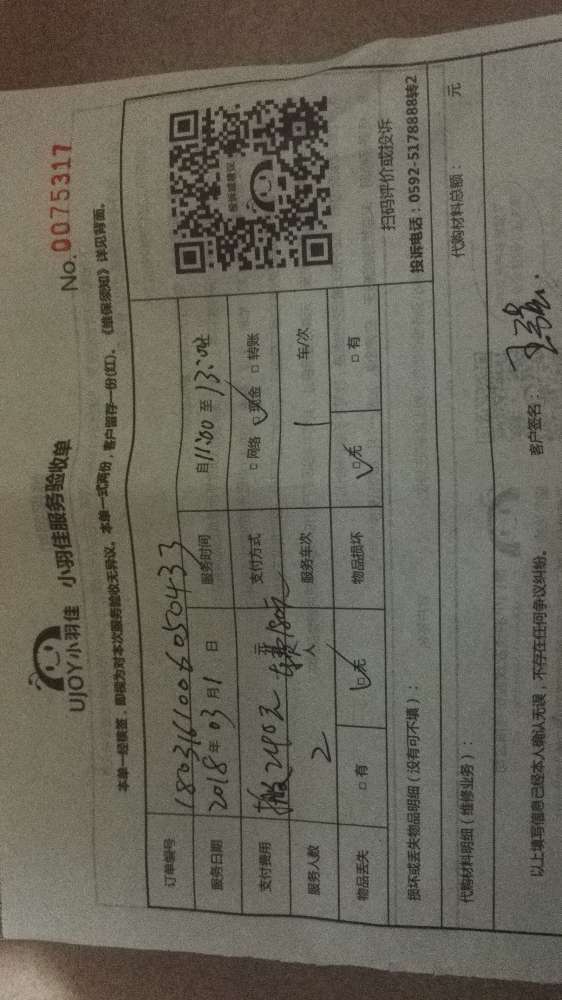 UJOY小羽佳 小羽佳服务验收单
No. 0075317
本单一经填签，即视为对本次服务验收无异议。本单一式两份，客户留存一份(红)。《维保须知》详见背面。
订单编号 1803161006050433
服务日期 2018年03月1日 服务时间 自11:00至13:00止
支付费用 搬240元 车费180元 元 支付方式 □网络 ☑现金 □转账
服务人数 2 人 服务车次 1 车/次
物品丢失 □有 ☑无 物品损坏 ☑无 □有
扫码评价或投诉
投诉电话：0592-5178888转2
损坏或丢失物品明细（没有可不填）：
代购材料明细（维修业务）： 代购材料总额： 元
以上填写信息已经本人确认无误，不存在任何争议纠纷。 客户签名：